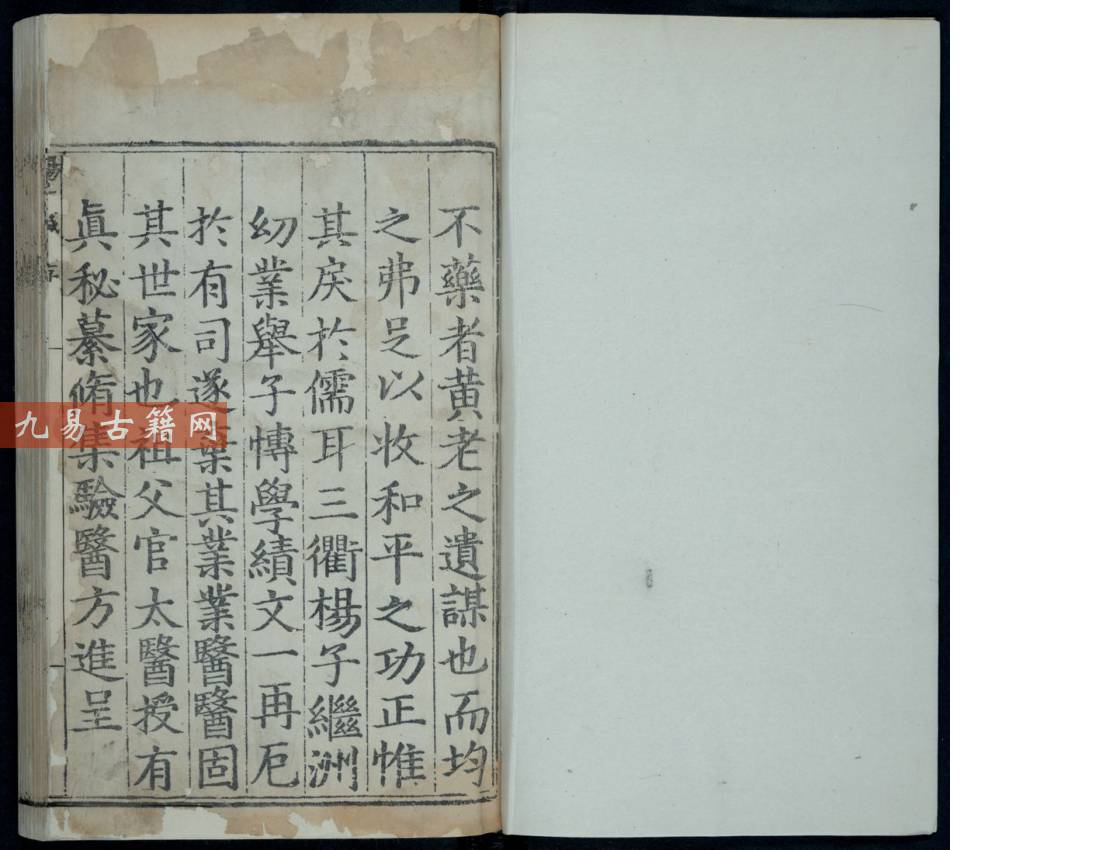 不藥者黄老之遺謀也而均
之弗足以收和平之功正惟
其戾於儒耳三衢楊子繼洲
幼業舉子愽學績文一再厄
於有司遂棄其業業醫醫固
其世家也祖父官太醫授有
眞秘纂脩集驗醫方進呈
九易古籍网